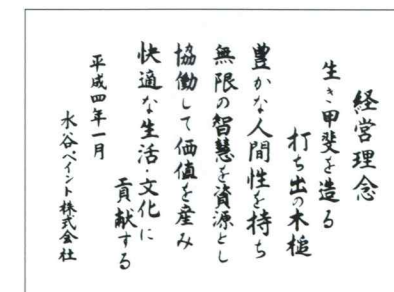 経営理念
生き甲斐を造る
打ち出の木槌
豊かな人間性を持ち
無限の智慧を資源とし
協働して価値を産み
快適な生活・文化に
貢献する
平成四年一月
水谷ペイント株式会社